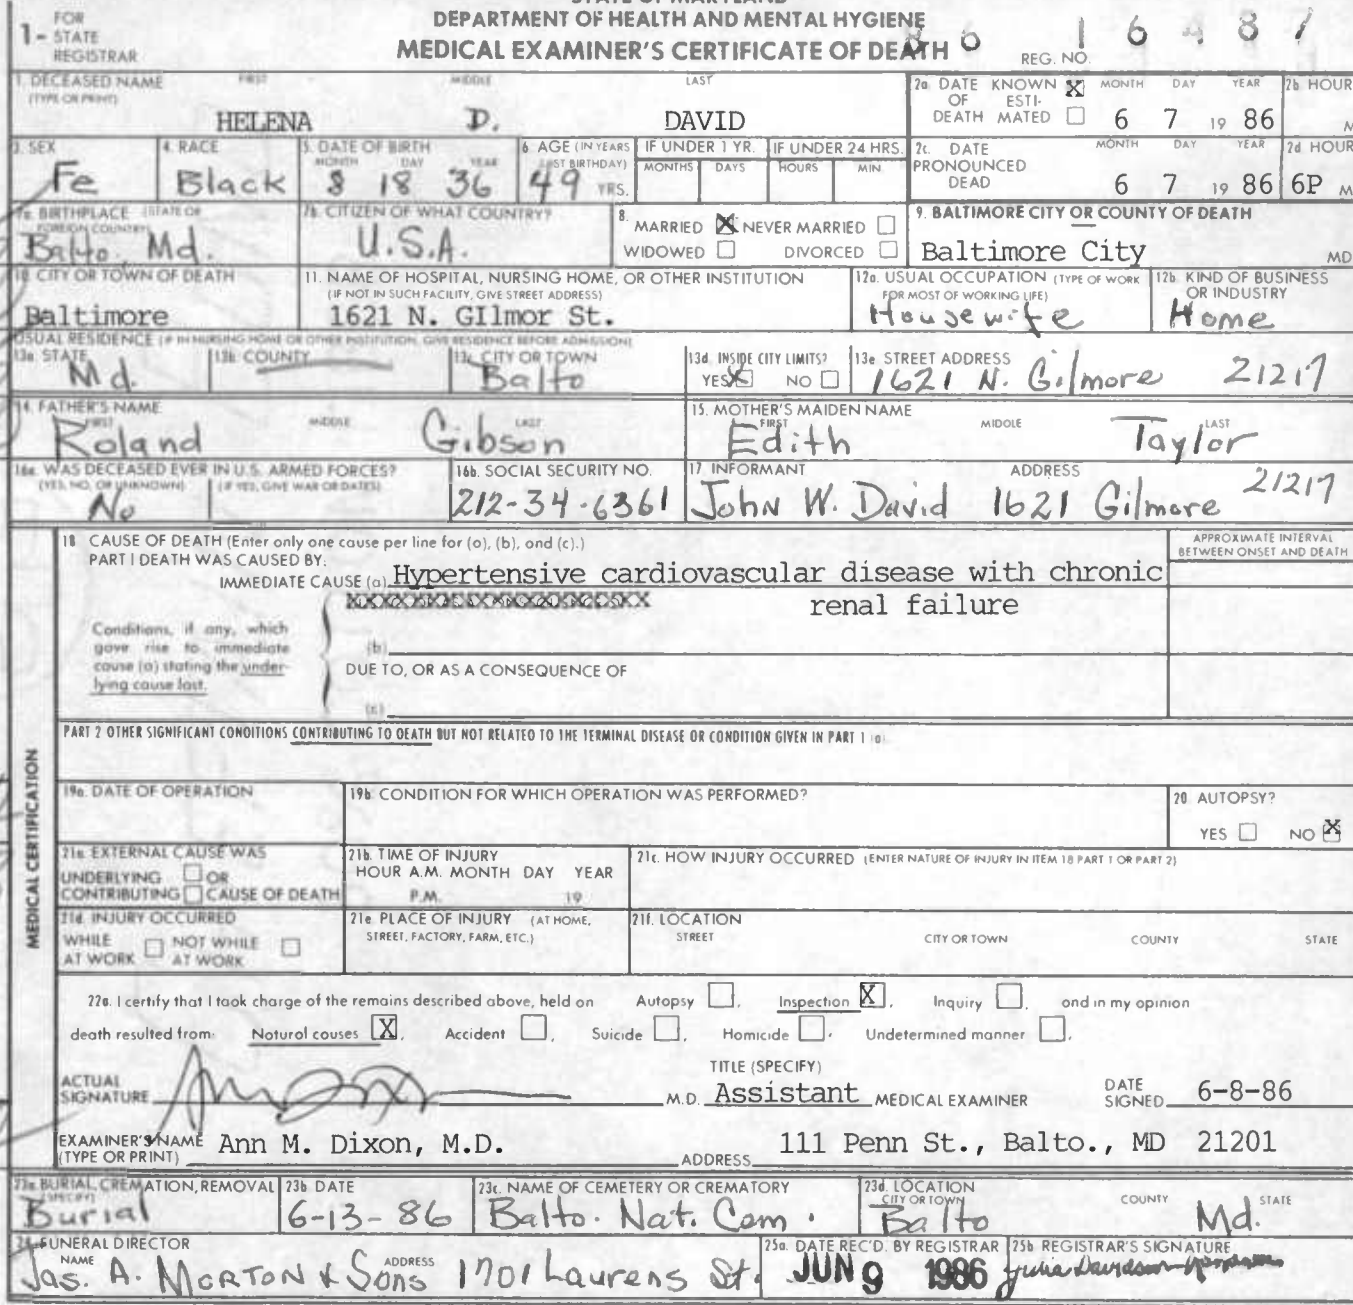 FOR
1- STATE
REGISTRAR
STATE OF MARYLAND
DEPARTMENT OF HEALTH AND MENTAL HYGIENE
MEDICAL EXAMINER'S CERTIFICATE OF DEATH
REG. NO. 86 16487
1. DECEASED NAME (TYPE OR PRINT) FIRST MIDDLE LAST
HELENA D. DAVID
2a. DATE OF DEATH KNOWN X ESTIMATED MONTH DAY YEAR 2b HOUR
6 7 19 86 M
3. SEX 4. RACE 5. DATE OF BIRTH MONTH DAY YEAR 6. AGE (IN YEARS LAST BIRTHDAY) IF UNDER 1 YR. MONTHS DAYS IF UNDER 24 HRS. HOURS MIN.
Fe Black 8 18 36 49 YRS.
2c. DATE PRONOUNCED DEAD MONTH DAY YEAR 2d HOUR
6 7 19 86 6P M
7a. BIRTHPLACE (STATE OR FOREIGN COUNTRY)
Balto, Md.
7b. CITIZEN OF WHAT COUNTRY?
U.S.A.
8. MARRIED X NEVER MARRIED
WIDOWED DIVORCED
9. BALTIMORE CITY OR COUNTY OF DEATH
Baltimore City MD
10. CITY OR TOWN OF DEATH
Baltimore
11. NAME OF HOSPITAL, NURSING HOME, OR OTHER INSTITUTION
(IF NOT IN SUCH FACILITY, GIVE STREET ADDRESS)
1621 N. GIlmor St.
12a. USUAL OCCUPATION (TYPE OF WORK FOR MOST OF WORKING LIFE)
Housewife
12b. KIND OF BUSINESS OR INDUSTRY
Home
USUAL RESIDENCE (IF IN NURSING HOME OR OTHER INSTITUTION, GIVE RESIDENCE BEFORE ADMISSION)
13a. STATE
Md.
13b. COUNTY
13c. CITY OR TOWN
Balto
13d. INSIDE CITY LIMITS?
YES X NO
13e STREET ADDRESS
1621 N. Gilmore 21217
14. FATHER'S NAME FIRST MIDDLE LAST
Roland Gibson
15. MOTHER'S MAIDEN NAME FIRST MIDDLE LAST
Edith Taylor
16a. WAS DECEASED EVER IN U.S. ARMED FORCES?
(YES, NO, OR UNKNOWN) (IF YES, GIVE WAR OR DATES)
No
16b. SOCIAL SECURITY NO.
212-34-6361
17. INFORMANT ADDRESS
John W. David 1621 Gilmore 21217
MEDICAL CERTIFICATION
18 CAUSE OF DEATH (Enter only one cause per line for (a), (b), and (c).)
PART I DEATH WAS CAUSED BY:
APPROXIMATE INTERVAL BETWEEN ONSET AND DEATH
IMMEDIATE CAUSE (a) Hypertensive cardiovascular disease with chronic
renal failure
Conditions, if any, which gave rise to immediate cause (a) stating the underlying cause last.
(b)
DUE TO, OR AS A CONSEQUENCE OF
(c)
PART 2 OTHER SIGNIFICANT CONDITIONS CONTRIBUTING TO DEATH BUT NOT RELATED TO THE TERMINAL DISEASE OR CONDITION GIVEN IN PART 1 (a)
19a. DATE OF OPERATION
19b. CONDITION FOR WHICH OPERATION WAS PERFORMED?
20 AUTOPSY?
YES NO X
21a. EXTERNAL CAUSE WAS
UNDERLYING OR
CONTRIBUTING CAUSE OF DEATH
21b. TIME OF INJURY
HOUR A.M. MONTH DAY YEAR
P.M. 19
21c. HOW INJURY OCCURRED (ENTER NATURE OF INJURY IN ITEM 18 PART 1 OR PART 2)
21d. INJURY OCCURRED
WHILE AT WORK NOT WHILE AT WORK
21e. PLACE OF INJURY (AT HOME, STREET, FACTORY, FARM, ETC.)
21f. LOCATION
STREET CITY OR TOWN COUNTY STATE
22a. I certify that I took charge of the remains described above, held on Autopsy , Inspection X , Inquiry , and in my opinion
death resulted from: Natural causes X , Accident , Suicide , Homicide , Undetermined manner .
ACTUAL SIGNATURE
M.D.
TITLE (SPECIFY)
Assistant MEDICAL EXAMINER
DATE SIGNED 6-8-86
EXAMINER'S NAME (TYPE OR PRINT) Ann M. Dixon, M.D.
ADDRESS 111 Penn St., Balto., MD 21201
23a. BURIAL, CREMATION, REMOVAL (SPECIFY)
Burial
23b DATE
6-13-86
23c. NAME OF CEMETERY OR CREMATORY
Balto. Nat. Cem.
23d. LOCATION
CITY OR TOWN COUNTY STATE
Balto Md.
24. FUNERAL DIRECTOR
NAME ADDRESS
Jas. A. MORTON & Sons 1701 Laurens St.
25a. DATE REC'D. BY REGISTRAR
JUN 9 1986
25b. REGISTRAR'S SIGNATURE
Julia Davidson